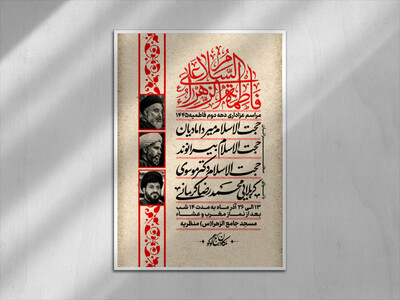 السلام علی
فاطمة الزهراء
مراسم عزاداری دهه دوم فاطمیه ۱۴۴۵
حجت الاسلام میردامادیان
حجت الاسلام بیرانوند
حجت الاسلام دکتر موسوی
کربلایی محمدرضا کرمانی
۱۳ الی ۲۶ آذر ماه به مدت ۱۴ شب
بعد از نماز مغرب و عشاء
مسجد جامع الزهرا(س) منظریه